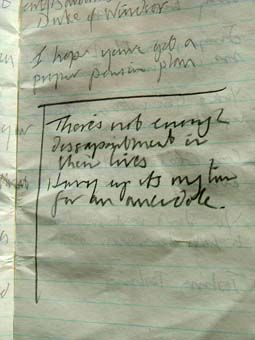 Duke of Windsor
I hope you've got a
proper pension plan
There's not enough
disappointment in
their lives
Hurry up its my turn
for an anecdote.